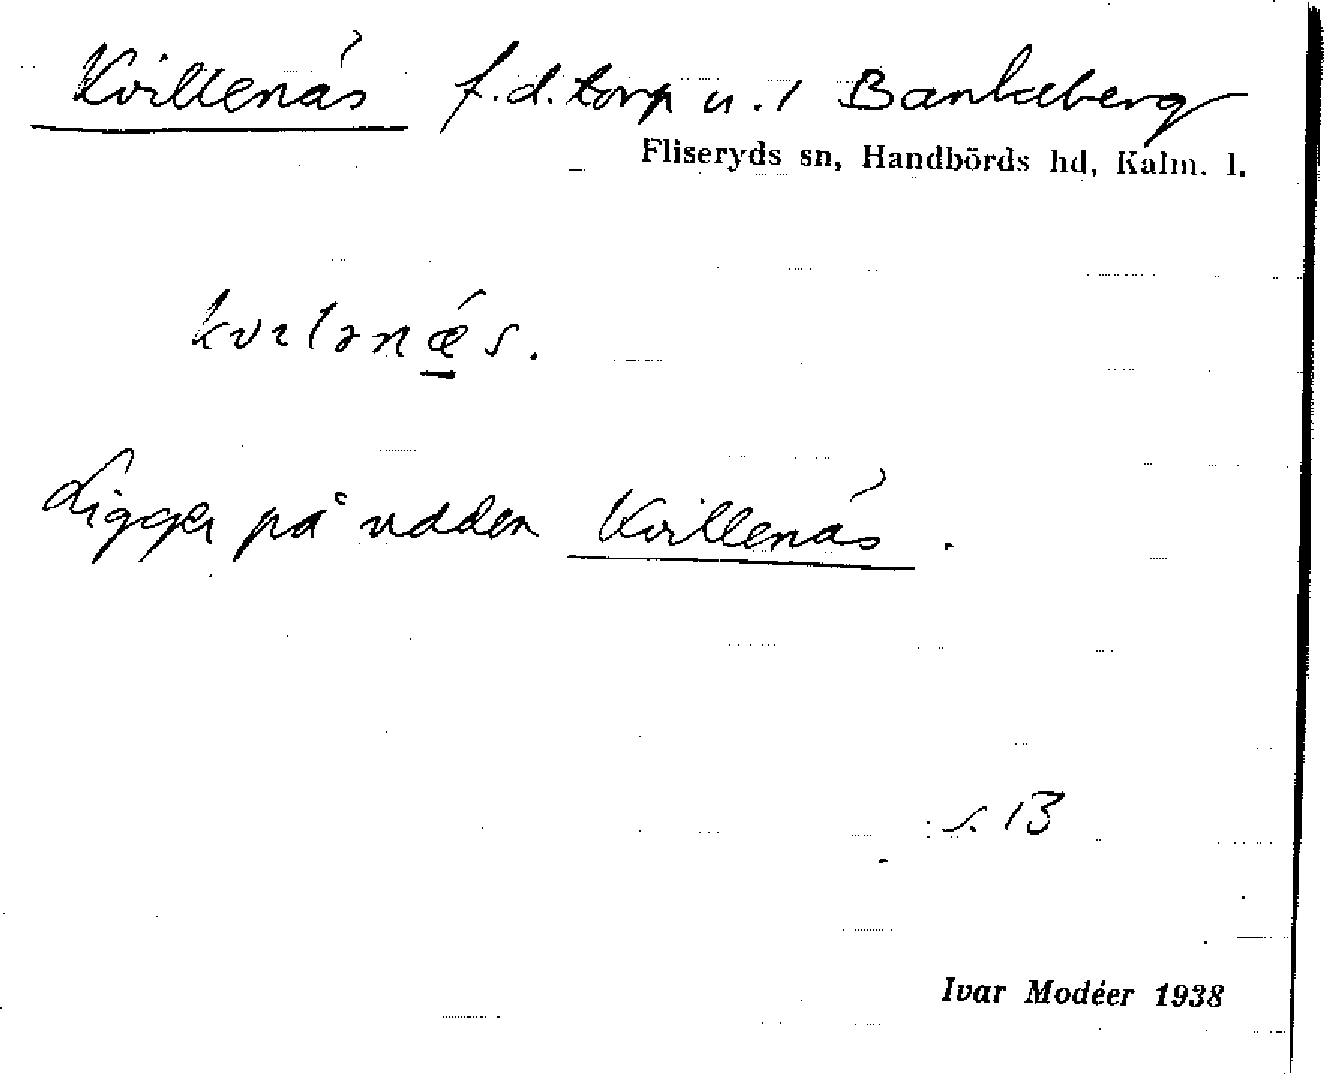 Kvillenäs f.d. torp u. 1 Bankeberg
Fliseryds sn, Handbörds hd, Kalm. l.
kvılənǽs.
Ligger på udden Kvillenäs.
s. 13
Ivar Modéer 1938